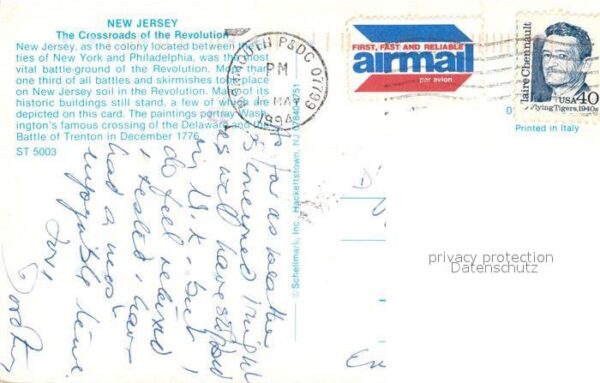 NEW JERSEY
The Crossroads of the Revolution
New Jersey, as the colony located between the
ties of New York and Philadelphia, was the most
vital battle-ground of the Revolution. More than
one third of all battles and skirmishes took place
on New Jersey soil in the Revolution. Many of its
historic buildings still stand, a few of which are
depicted on this card. The paintings portray Wash-
ington's famous crossing of the Delaware and the
Battle of Trenton in December 1776.
ST 5003
P&DC 07799
PM
MA
FIRST, FAST AND RELIABLE
airmail
par avion
laire Chennault
USA 40
Flying Tigers, 1940s
Printed in Italy
© Schellmark, Inc., Hackettstown, N.J. 07840-0751
As far as weather
is concerned I might
as well have stayed
in U.K., but I
do feel relaxed
& rested & have
had a most
enjoyable time
privacy protection
Datenschutz